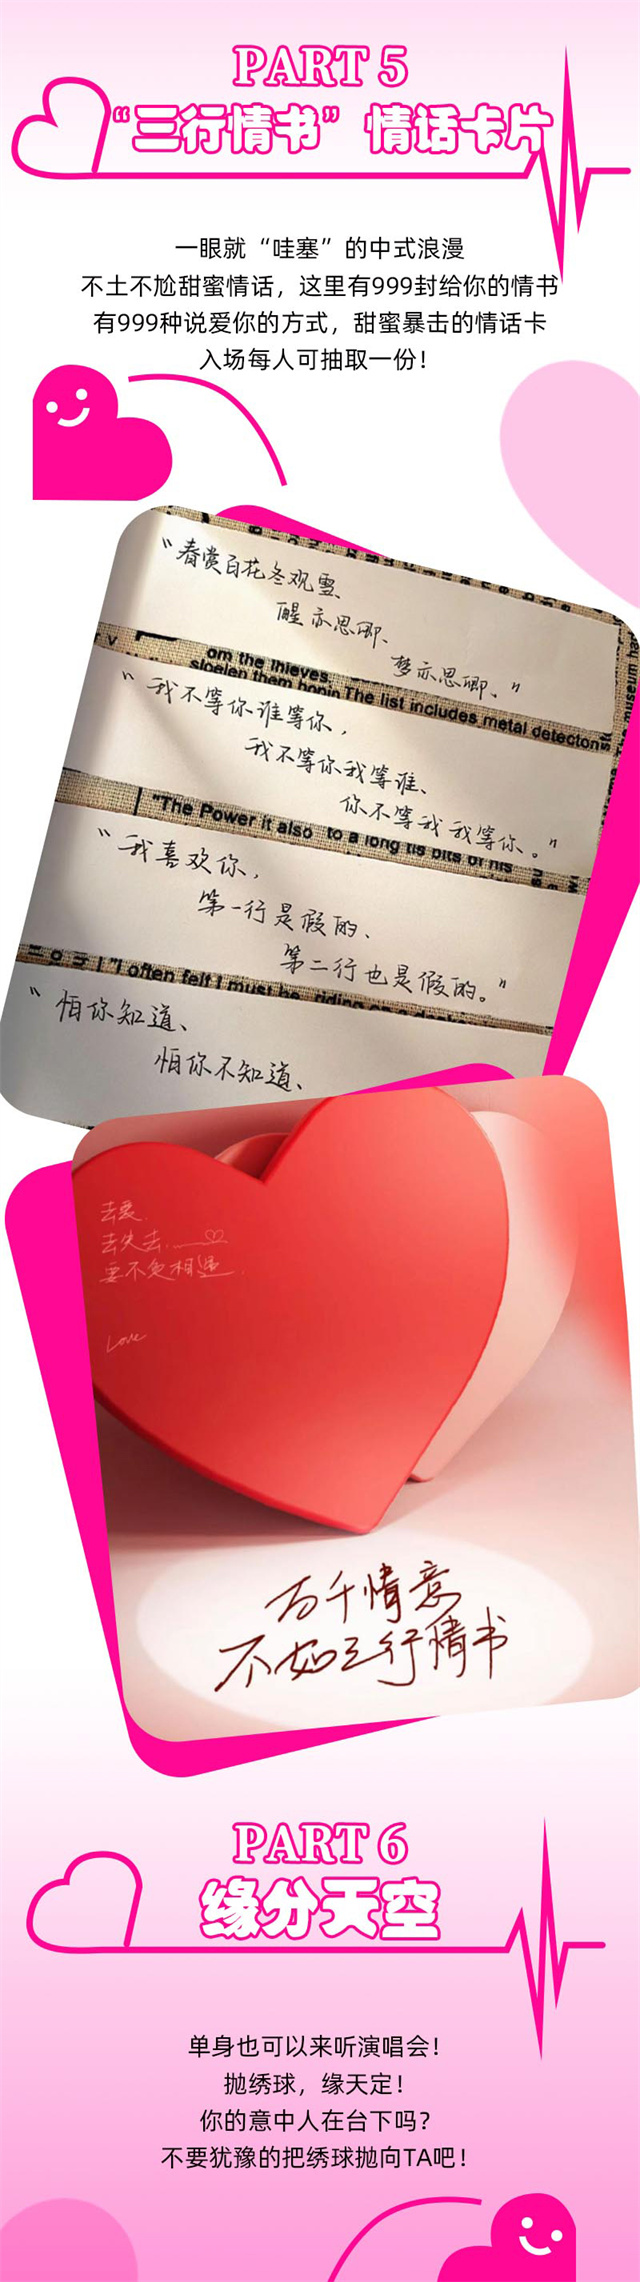 PART 5
“三行情书”情话卡片
一眼就“哇塞”的中式浪漫
不土不尬甜蜜情话，这里有999封给你的情书
有999种说爱你的方式，甜蜜暴击的情话卡
入场每人可抽取一份！
“春赏百花冬观雪、
醒亦思卿、
梦亦思卿、”
om the thieves.
The list includes metal detectors
“我不等你谁等你，
我不等你我等谁、
你不等我我等你。”
"The Power it also to a long
“我喜欢你，
第一行是假的、
第二行也是假的。”
"I often felt I must be
“怕你知道、
怕你不知道、
去爱.
去失去.
要不负相遇.
Love
万千情意
不如三行情书
PART 6
缘分天空
单身也可以来听演唱会！
抛绣球，缘天定！
你的意中人在台下吗？
不要犹豫的把绣球抛向TA吧！